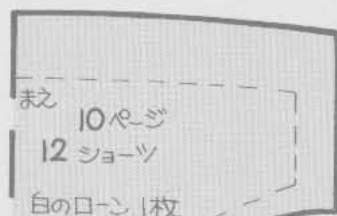 まえ
10ページ
12 ショーツ
白のローン 1枚